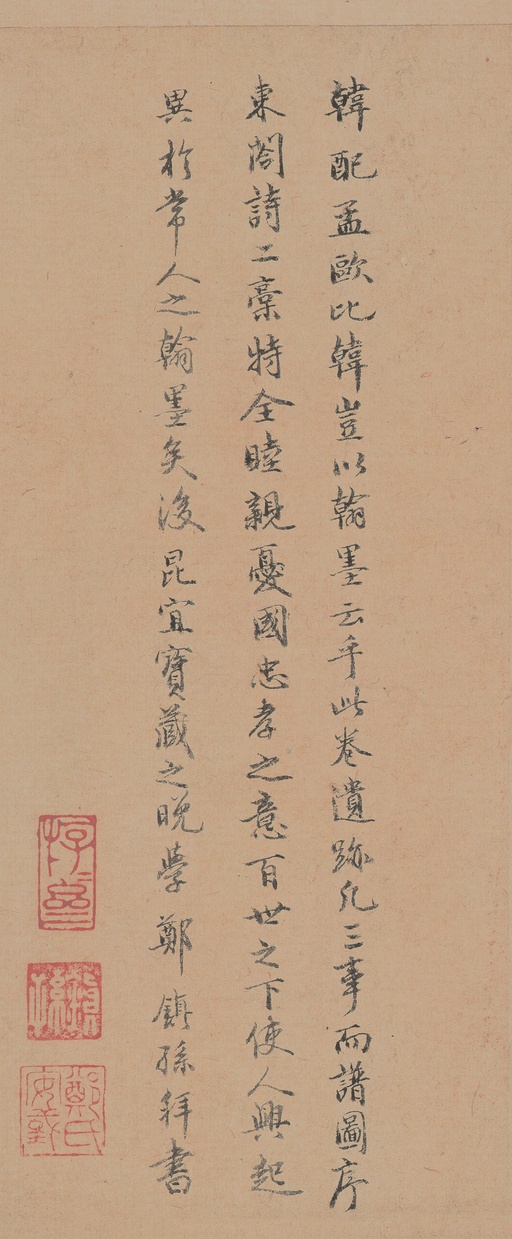 韓配孟歐比韓豈以翰墨云乎此卷遺跡凡三事而譜圖序
東閤詩二稾特全睦親憂國忠孝之意百世之下使人興起
異於常人之翰墨矣後昆宜寶藏之晚學鄭鎮孫拜書
鄭氏